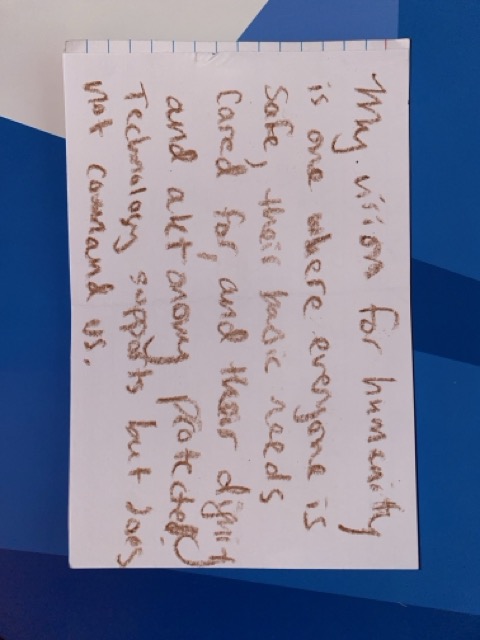 My vision for humanity
is one where everyone is
safe, their basic needs
cared for, and their dignity
and aktonomy protected.
Technology supports but does
not command us.